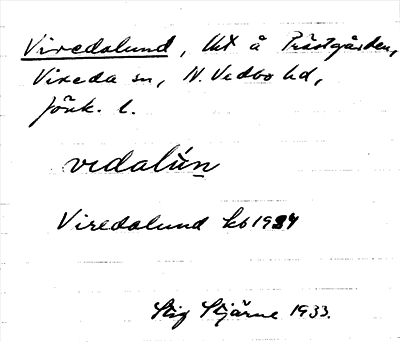 Viredalund, lht å Prästgården,
Vireda sn, N. Vedbo hd,
Jönk. l.
vıdalún
Viredalund kb 1934
Stig Stjärne 1933.